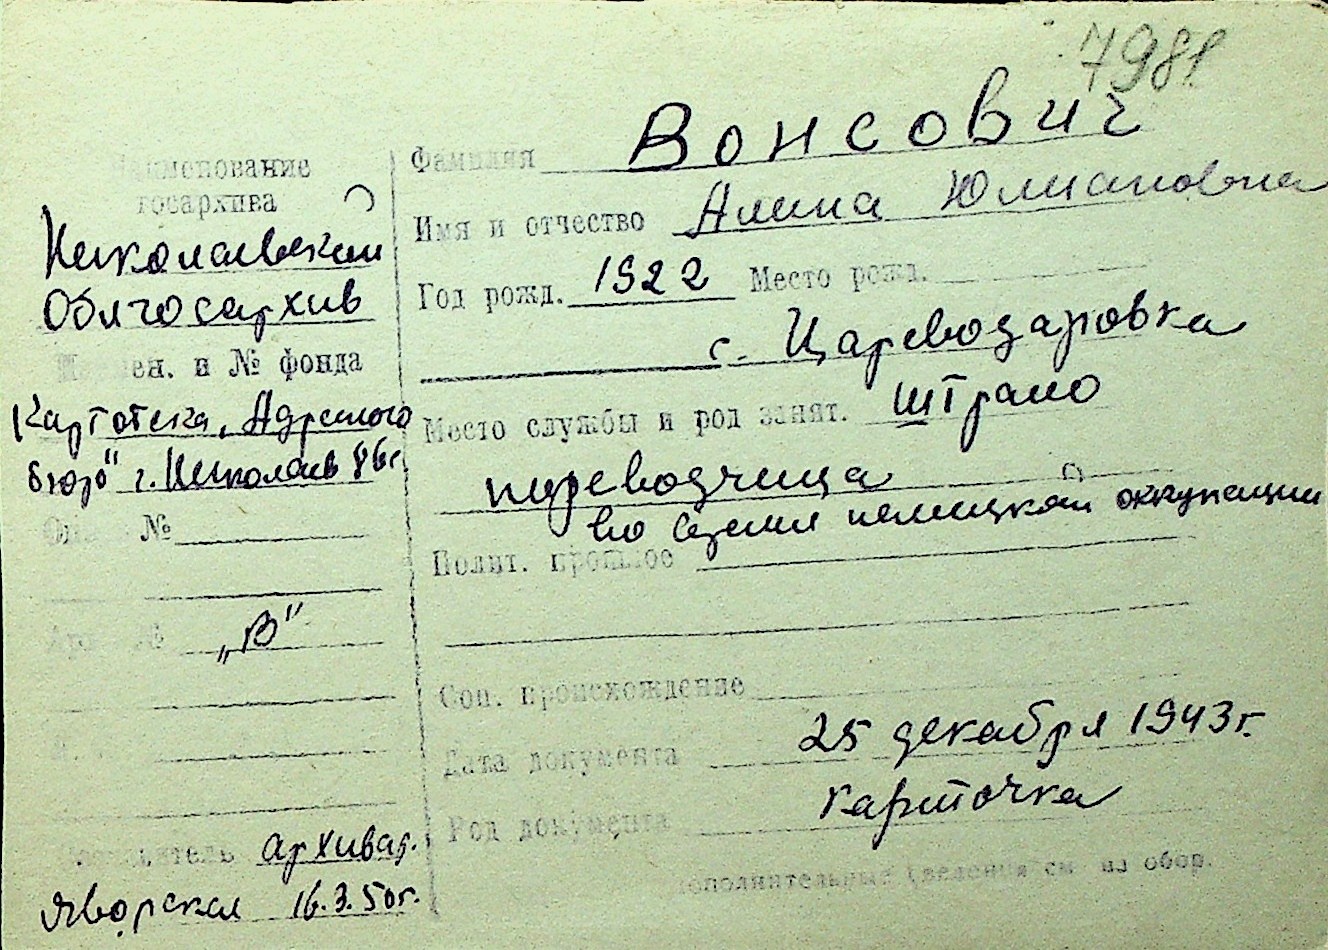 7981
Наименование
госархива
Николаевский
Облгосархив
№ фонда
Картотека „Адресного
бюро" г. Николаев
№
„В"
архивар.
Яворская 16.3.50г.
Фамилия Вонсович
Имя и отчество Алина Юлиановна
Год рожд. 1922 Место рожд.
с. Цареводаровка
Место службы и род занят. Штрамо
переводчица
немецкой оккупации
Полит. прошлое
Соц. происхождение
Дата документа 25 декабря 1943г.
Род документа карточка
Дополнительные сведения см на обор.